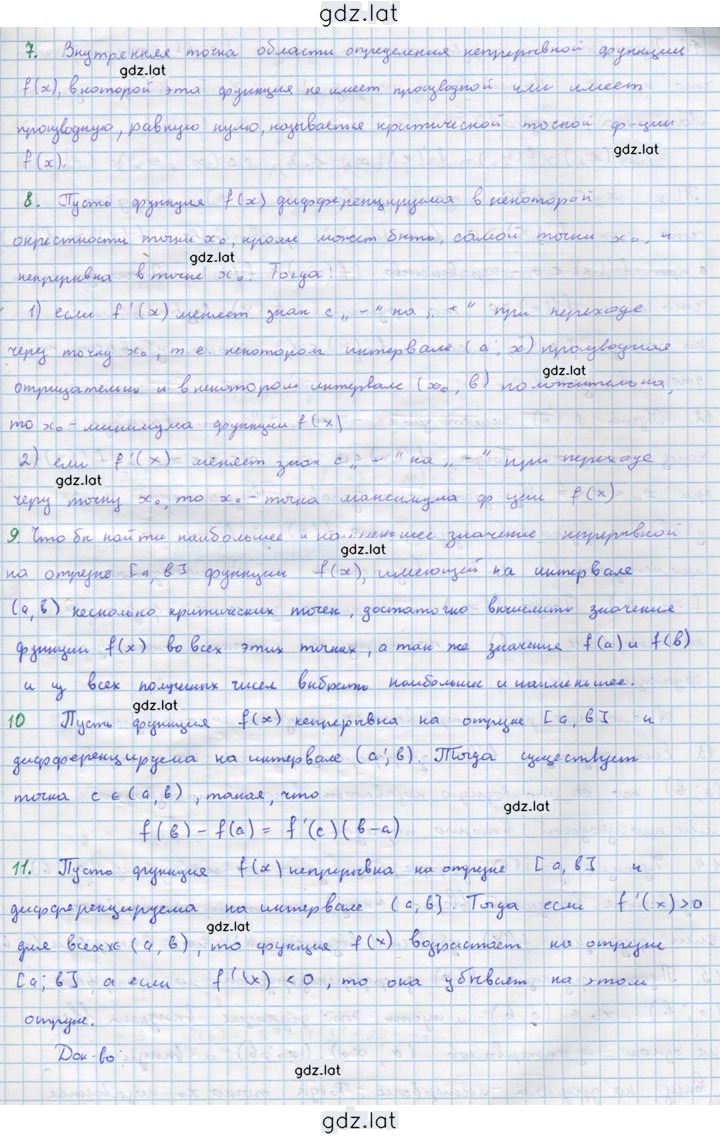 gdz.lat
7. Внутренняя точка области определения непрерывной функции
gdz.lat
f(x), в которой эта функция не имеет производной или имеет
производную, равную нулю, называется критической точкой ф-ции
gdz.lat
f(x).
8. Пусть функция f(x) дифференцируема в некоторой
окрестности точки x₀, кроме может быть, самой точки x₀, и
gdz.lat
непрерывна в точке x₀. Тогда:
1) если f'(x) меняет знак с „-" на „+" при переходе
через точку x₀, т е. некотором интервале (a; x) производная
gdz.lat
отрицательна и в некотором интервале (x₀, в) положительна,
то x₀ - минимума функции f(x)
2) если f'(x) меняет знак с „-" на „-" при переходе
gdz.lat
через точку x₀, то x₀ - точка максимума ф-ции f(x)
9. Что бы найти наибольшее и наименьшее значение непрерывной
gdz.lat
на отрезке [a, в] функции f(x), имеющей на интервале
(a, в) несколько критических точек, достаточно вычислить значение
функции f(x) во всех этих точках, а так же значения f(a) и f(в)
и из всех полученных чисел выбрать наибольшее и наименьшее.
gdz.lat
10 Пусть функция f(x) непрерывна на отрезке [a, в] и
дифференцируема на интервале (a; в). Тогда существует
точка c ∈ (a, в), такая, что
gdz.lat
f(в) - f(a) = f'(c)(в-a)
11. Пусть функция f(x) непрерывна на отрезке [a, в] и
дифференцируема на интервале (a, в]. Тогда если f'(x)>0
gdz.lat
для всех x ∈ (a, в), то функция f(x) возрастает на отрезке
[a; в], а если f'(x) < 0, то она убывает на этом
отрезке.
Док-во:
gdz.lat
gdz.lat